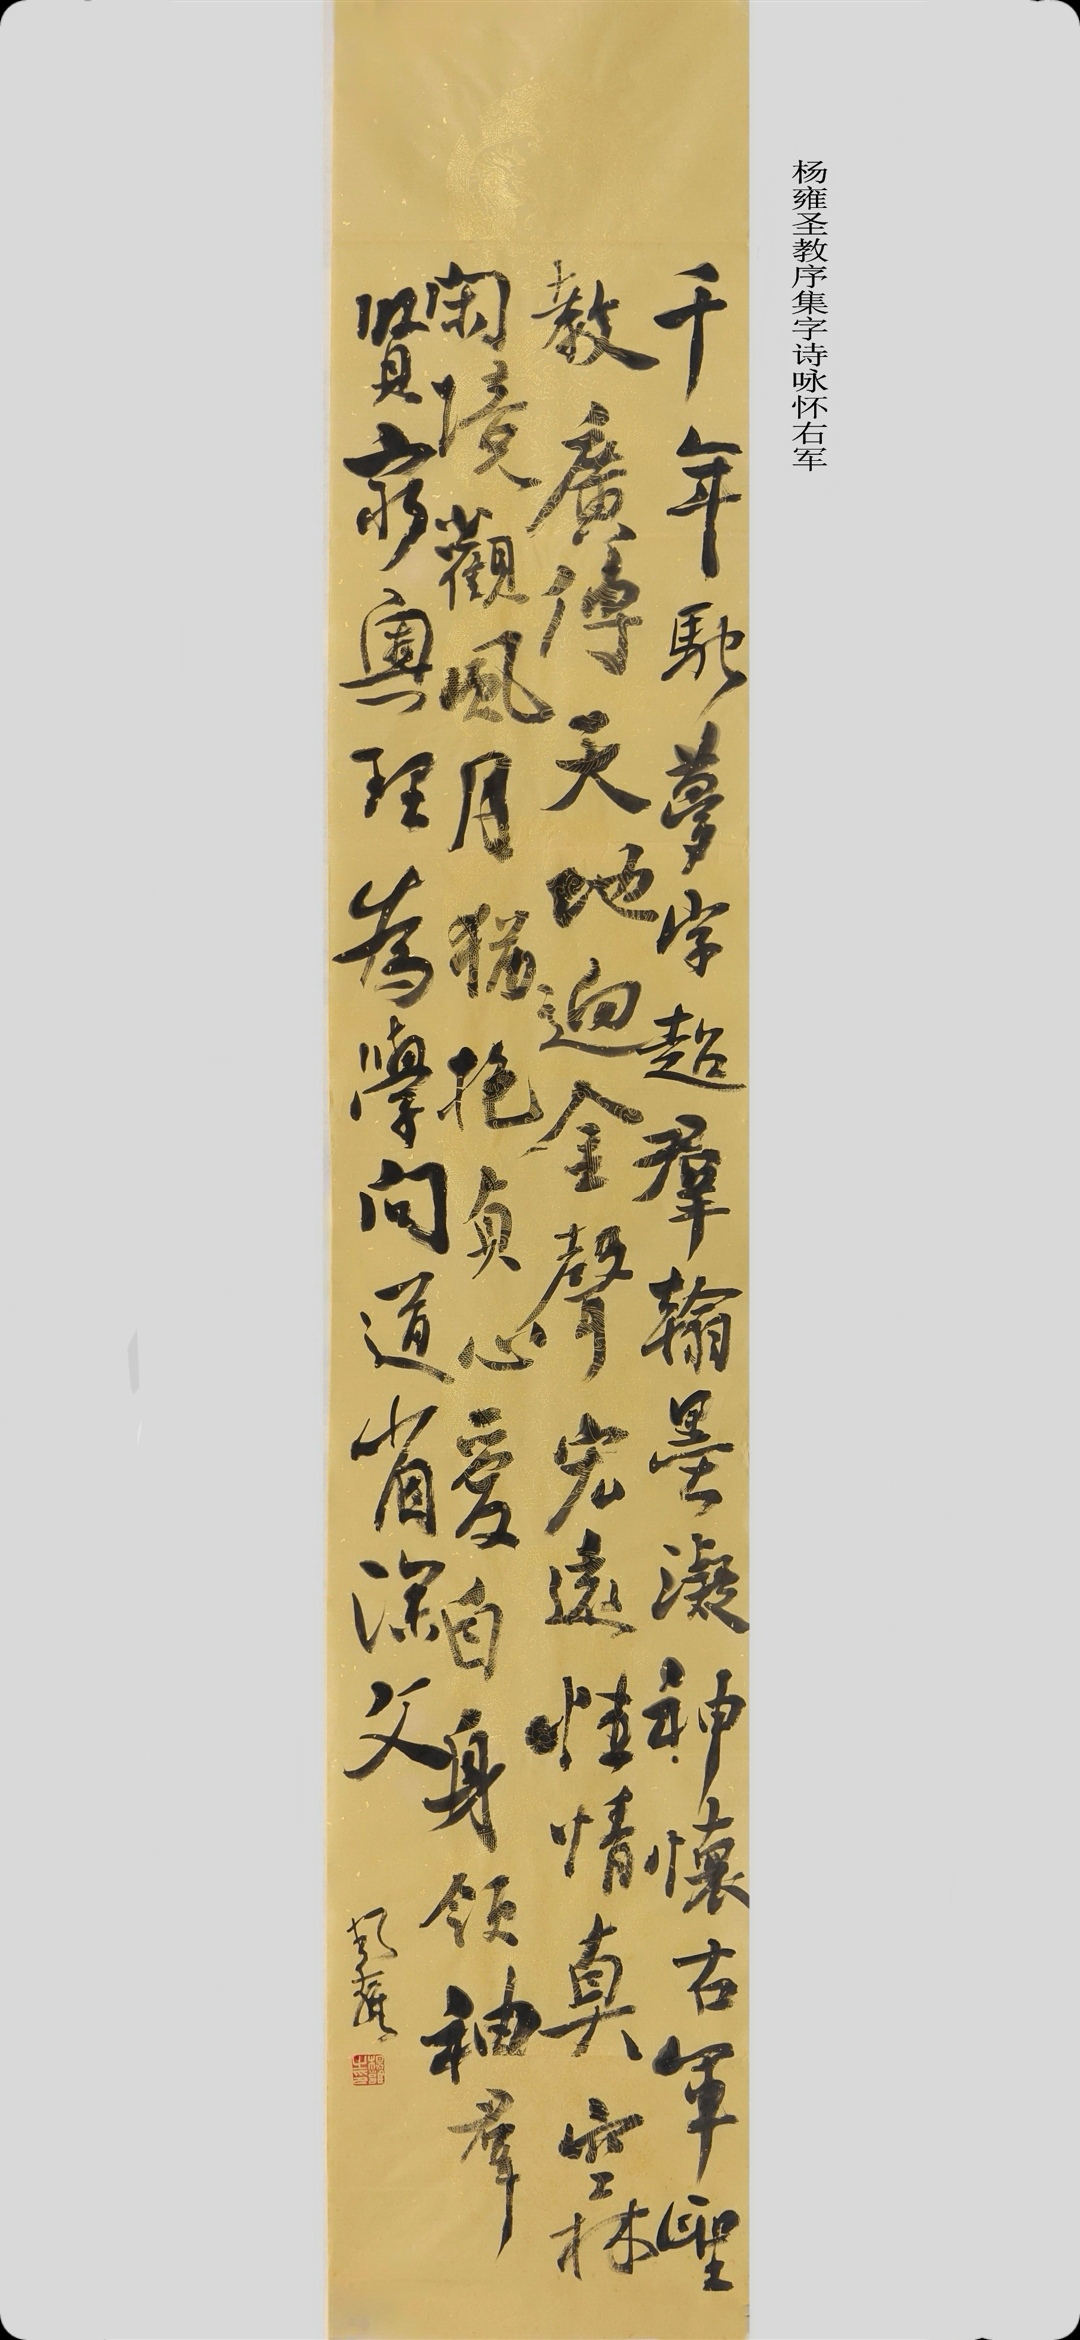 杨雍圣教序集字诗咏怀右军
千年馳夢字超羣翰墨凝神懷右軍聖
教廣傳天地逈金聲宏遠性情真空林
閑境觀風月猶抱貞心愛自身領袖羣
賢窮奧理為學問道省深文
楊雍
楊雍之印